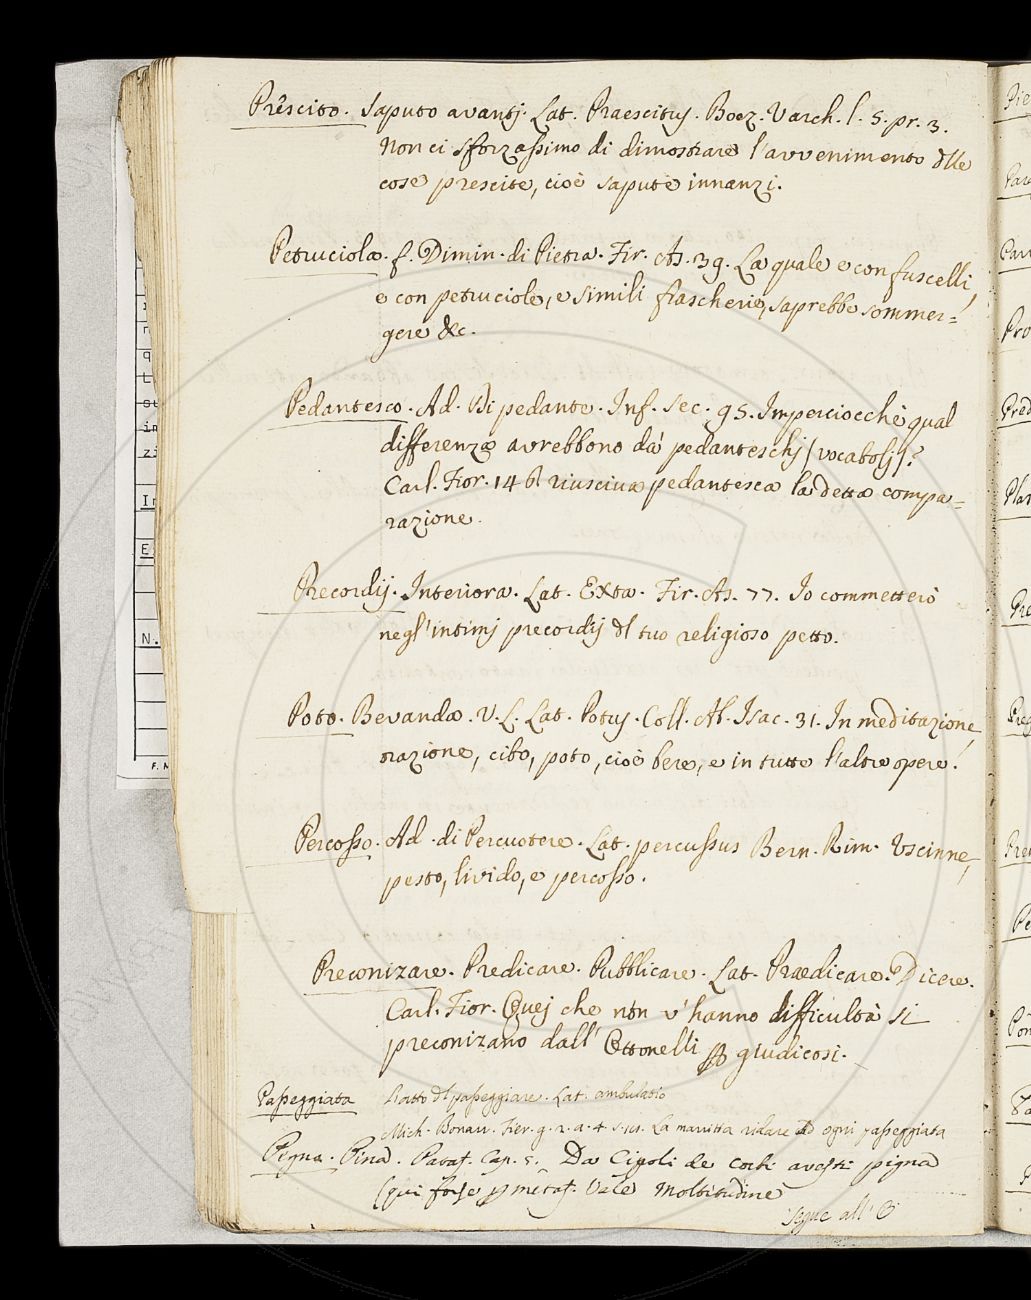 Prescito. Saputo avantj. Lat. Praescitus. Boez. Varch. l. 5. pr. 3.
Non ci sforzassimo di dimostrare l'avvenimento dlle
cose prescite, cioè sapute innanzi.
Petruciola. f. Dimin. di Pietra. Fir. As. 39. La quale e con fuscelli,
e con petruciole, e simili frascherie, saprebbe sommer=
gere &c.
Pedantesco. Ad. Di pedante. Inf. Sec. 95. Imperciocchè qual
differenza avrebbono da' pedanteschj (vocabolj)?
Carl. Fior. 146 riusciva pedantesca la detta compa=
razione.
Precordij. Interiora. Lat. Exta. Fir. As. 77. Io commetterò
negl'intimj precordij dl tuo religioso petto.
Poto. Bevanda. V. L. Lat. Potus. Coll. Ab. Isac. 31. In meditazione,
orazione, cibo, poto, cioè bere, e in tutte l'altre opere.
Percosso. Ad. di Percuotere. Lat. percussus Bern. Rim. Uscinne,
pesto, livido, e percosso.
Preconizare. Predicare. Pubblicare. Lat. Praedicare. Dicere.
Carl. Fior. Quej che non v'hanno difficultà si
preconizano dall' Ottonelli giudicosi.
Passeggiata dl passeggiare. Lat. ambulatio
Mich. Bonarr. Fier. g. 2. a. 4 s. ridare ad ogni passeggiata
Pigna. Pina. Pataf. Cap. 5. Da Cigoli de pigna
(qui forse metaf. Vale Moltitudine
Segue all'